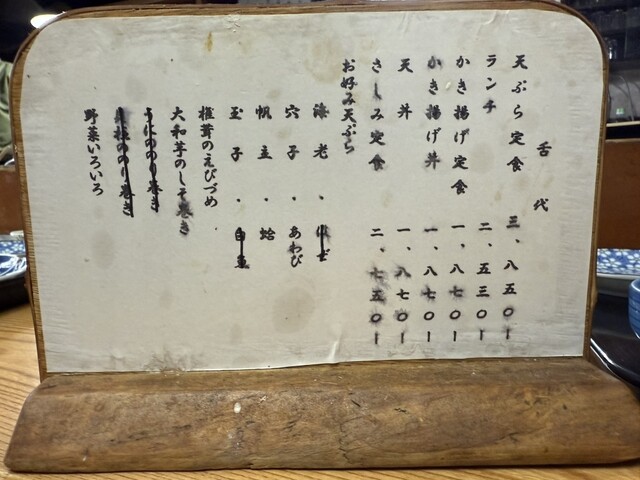 舌代
天ぷら定食 三、八五〇ー
ランチ 二、五三〇ー
かき揚げ定食 一、八七〇ー
かき揚げ丼 一、八七〇ー
天丼 一、八七〇ー
さしみ定食 二、七五〇ー
お好み天ぷら
海老・はぜ
穴子・あわび
帆立・蛤
玉子・白魚
椎茸のえびづめ
大和芋のしそ巻き
うにののり巻き
ののり巻き
野菜いろいろ